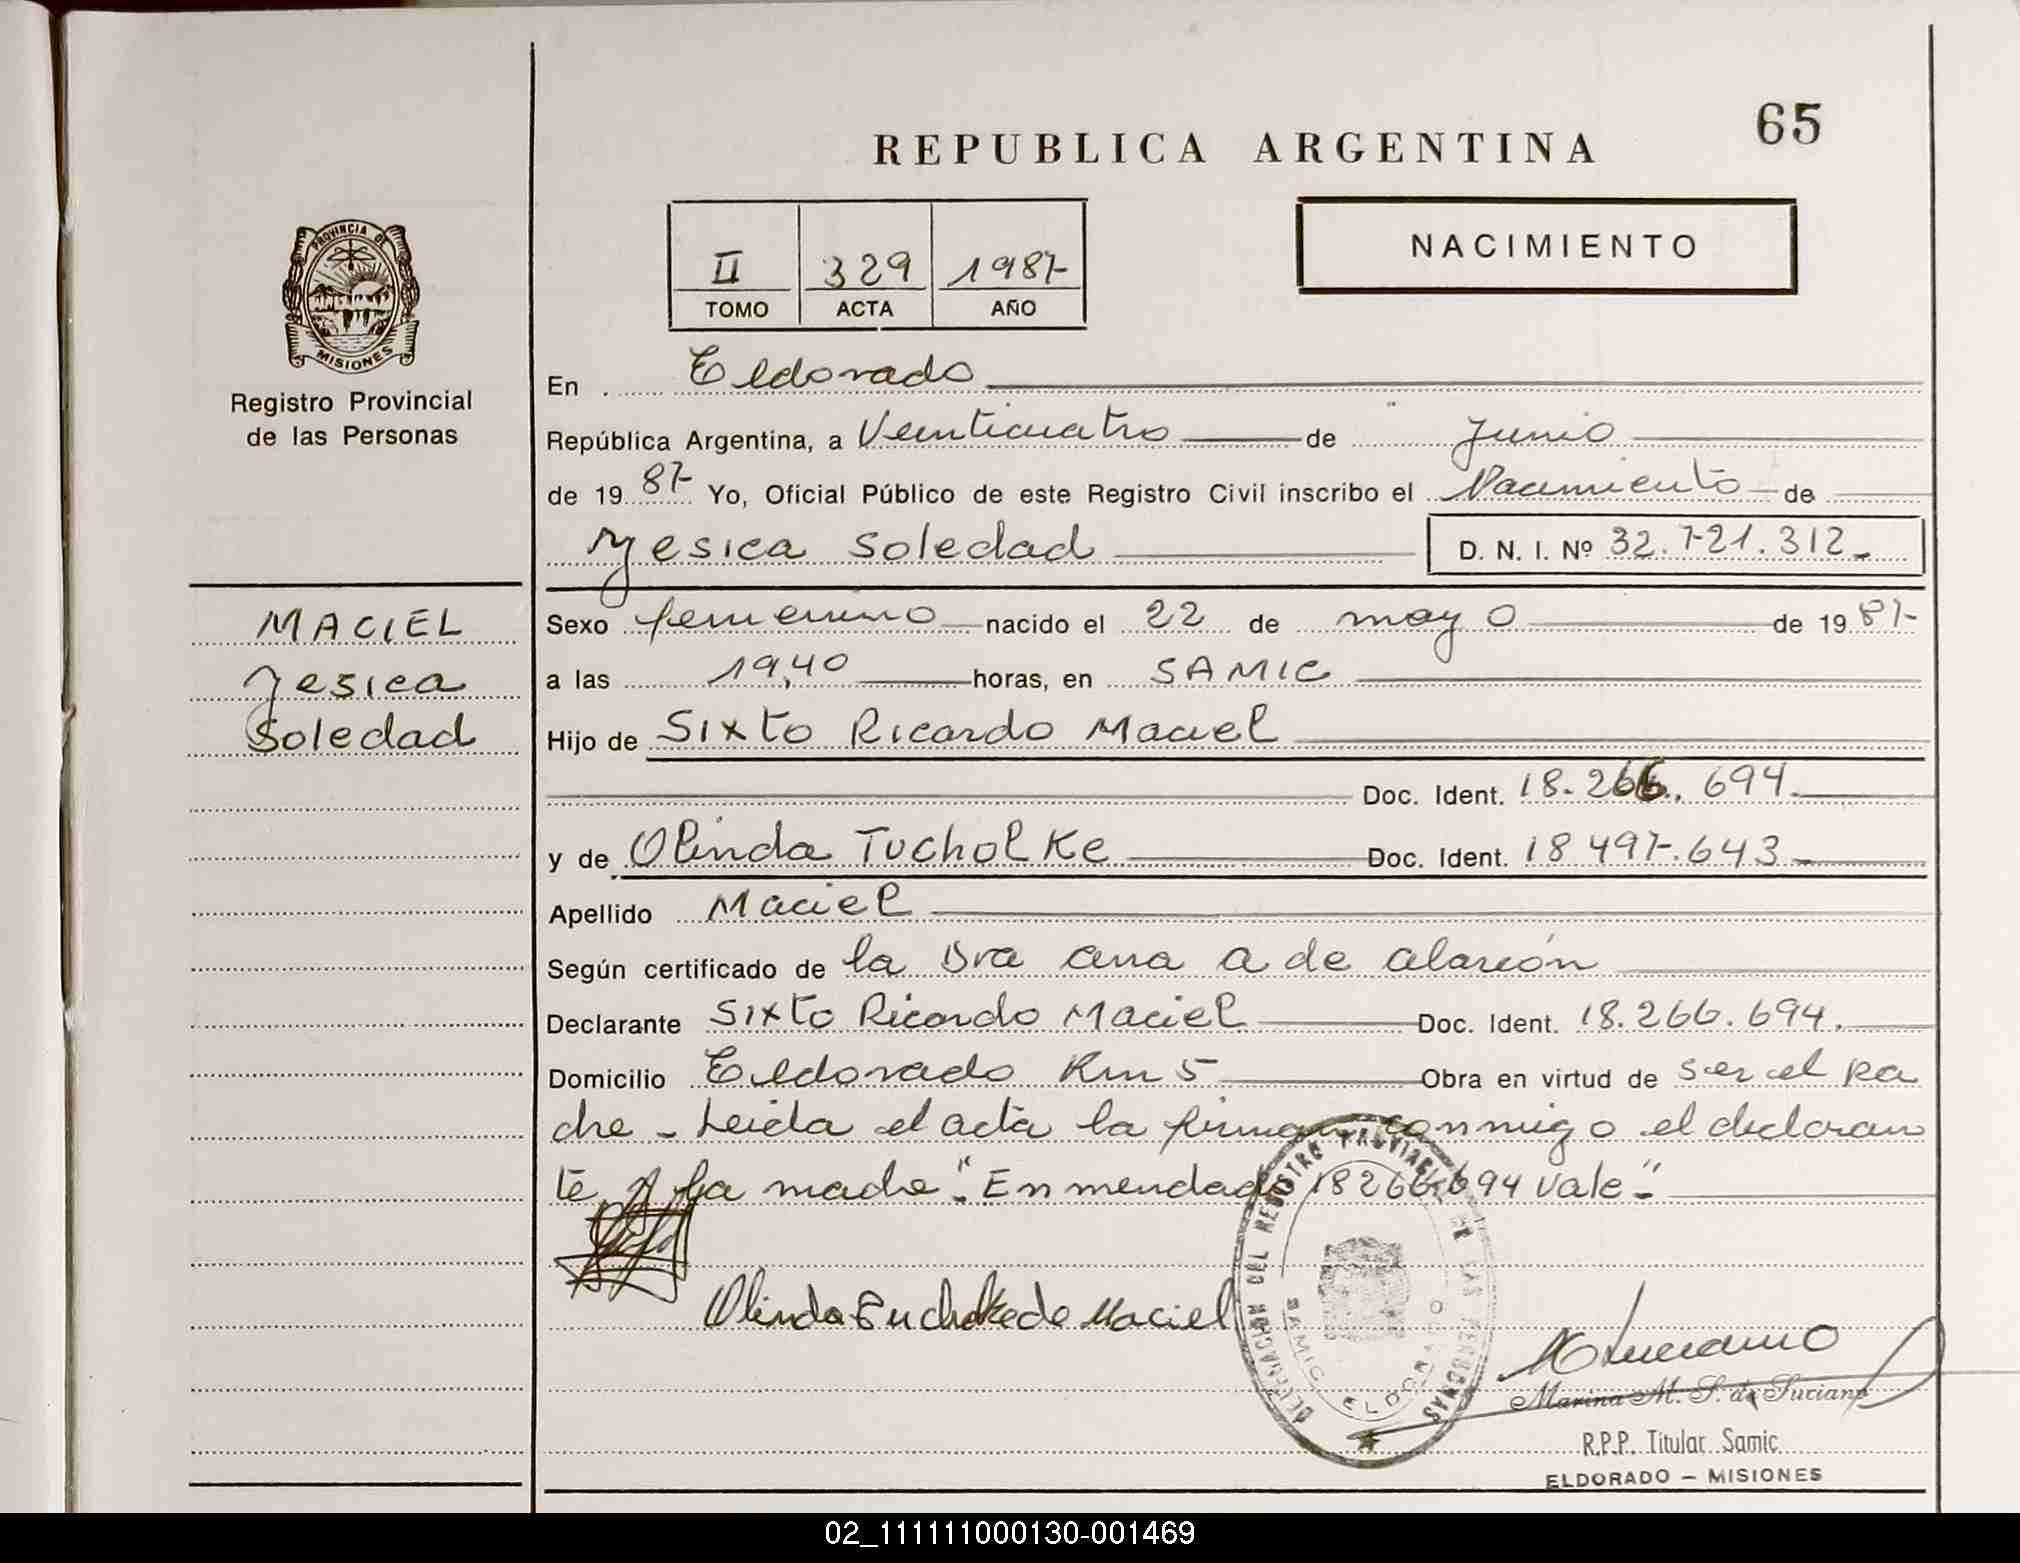 65
REPUBLICA ARGENTINA
NACIMIENTO
II 329 1987
TOMO ACTA AÑO
PROVINCIA DE
MISIONES
Registro Provincial
de las Personas
En Eldorado
República Argentina, a Veinticuatro de Junio
de 1987 Yo, Oficial Público de este Registro Civil inscribo el Nacimiento de
Yesica Soledad D. N. I. Nº 32.721.312
MACIEL
Yesica
Soledad
Sexo femenino nacido el 22 de mayo de 1987
a las 19,40 horas, en SAMIC
Hijo de Sixto Ricardo Maciel
Doc. Ident. 18.266.694.
y de Olinda Tucholke Doc. Ident. 18497.643
Apellido Maciel
Según certificado de la Dra Ana A de Alarcón
Declarante Sixto Ricardo Maciel Doc. Ident. 18.266.694.
Domicilio Eldorado Km 5 Obra en virtud de ser el pa
dre - Leida el acta la firman conmigo el declaran
te y la madre. "Enmendado 18266.694 vale"
Olinda Tucholke de Maciel
DELEGACION DEL REGISTRO PROVINCIAL DE LAS PERSONAS
SAMIC ELDORADO
Marina M. S. de Luciano
R.P.P. Titular Samic
ELDORADO – MISIONES
02_111111000130-001469